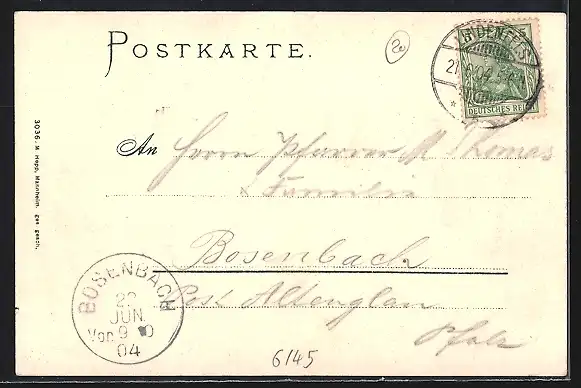 POSTKARTE.
2a
DEUTSCHES REICH
3036. M. Hepp, Mannheim. ges. gesch.
An Herrn Pfarrer M Thomas
& Familie
Bosenbach
Post Altenglan
Pfalz
BOSENBACH
JUN.
Vor. 9
04
6145